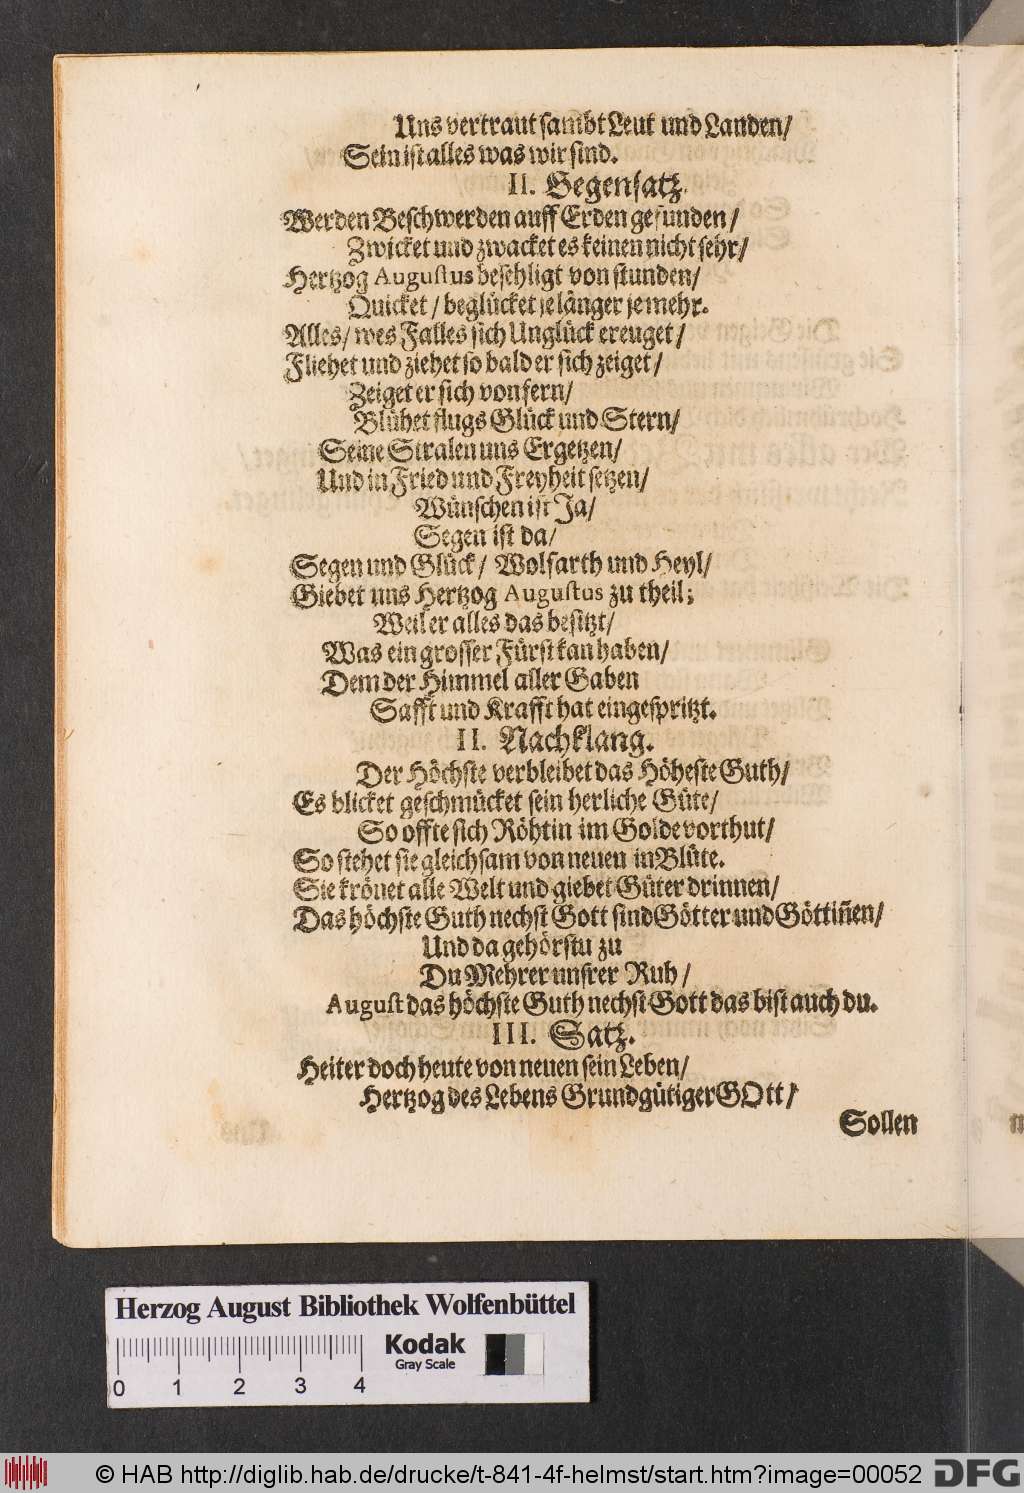 Uns vertraut sambt Leut und Landen/
Sein ist alles was wir sind.
II. Gegensatz.
Werden Beschwerden auff Erden gefunden/
Zwicket und zwacket es keinen nicht sehr/
Hertzog Augustus beschligt von stunden/
Quicket/ beglücket je länger je mehr.
Alles/ wes Falles sich Unglück ereuget/
Fliehet und ziehet so bald er sich zeiget/
Zeiget er sich von fern/
Blühet flugs Glück und Stern/
Seine Stralen uns Ergetzen/
Und in Fried und Freyheit setzen/
Wünschen ist Ja/
Segen ist da/
Segen und Glück/ Wolfarth und Heyl/
Giebet uns Hertzog Augustus zu theil;
Weil er alles das besitzt/
Was ein grosser Fürst kan haben/
Dem der Himmel aller Gaben
Safft und Krafft hat eingespritzt.
II. Nachklang.
Der Höchste verbleibet das Höheste Guth/
Es blicket geschmücket sein herliche Güte/
So offte sich Röhtin im Golde vorthut/
So stehet sie gleichsam von neuen in Blüte.
Sie krönet alle Welt und giebet Güter drinnen/
Das höchste Guth nechst Gott sind Götter und Göttiñen/
Und da gehörstu zu
Du Mehrer unsrer Ruh/
August das höchste Guth nechst Gott das bist auch du.
III. Satz.
Heiter doch heute von neuen sein Leben/
Hertzog des Lebens Grundgütiger GOtt/
Sollen
Herzog August Bibliothek Wolfenbüttel
Kodak
Gray Scale
0 1 2 3 4
© HAB http://diglib.hab.de/drucke/t-841-4f-helmst/start.htm?image=00052
DFG